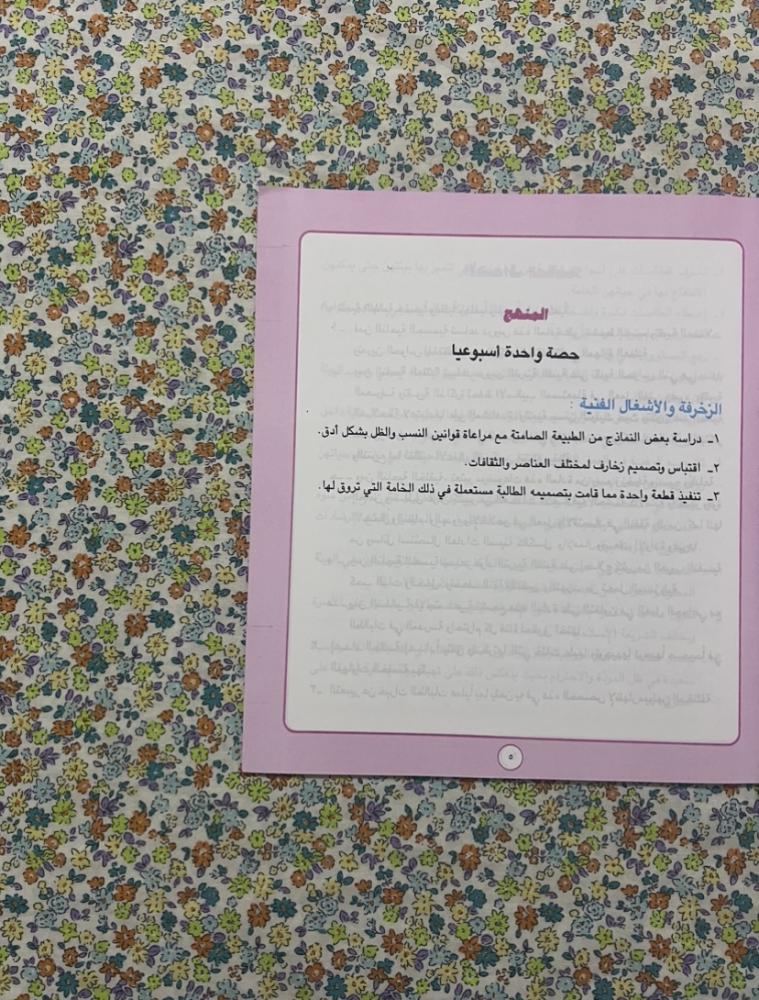 المنهج
حصة واحدة اسبوعيا
الزخرفة والأشغال الفنية :
١ـ دراسة بعض النماذج من الطبيعة الصامتة مع مراعاة قوانين النسب والظل بشكل أدق.
٢ـ اقتباس وتصميم زخارف لمختلف العناصر والثقافات.
٣ـ تنفيذ قطعة واحدة مما قامت بتصميمه الطالبة مستعملة في ذلك الخامة التي تروق لها.
٥